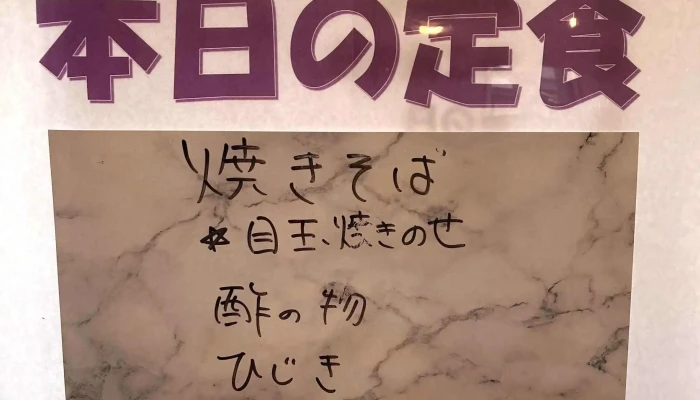 本日の定食
焼きそば
☆目玉焼きのせ
酢の物
ひじき